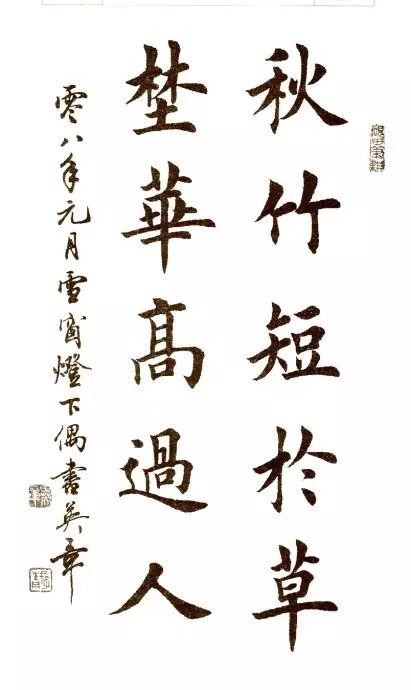 秋竹短於草
埜華高過人
零八年元月雪窗燈下偶書英章